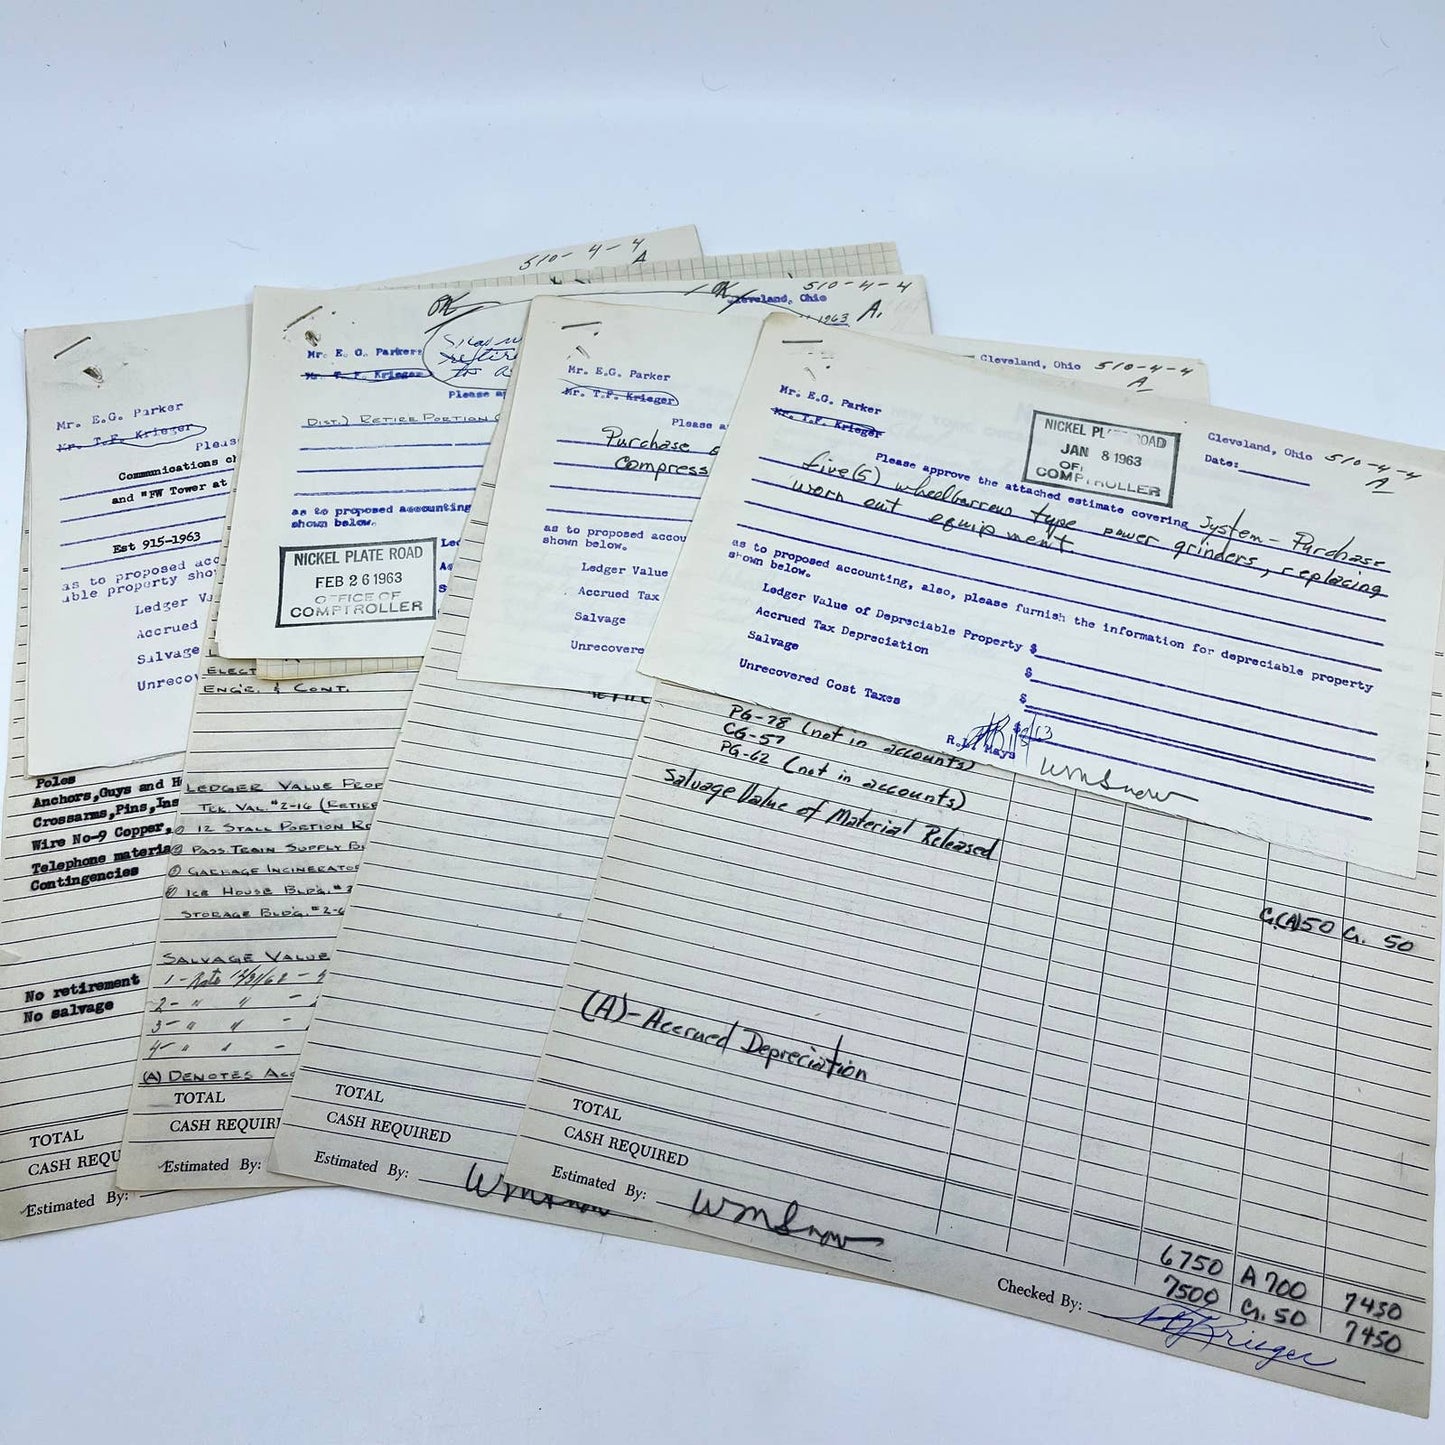 510-4-4
A
Mr. E.G. Parker
Mr. T.F. Krieger
Communications
and "FW Tower at
Est 915-1963
as to proposed
able property
Ledger
Accrued
Salvage
Poles
Anchors,Guys and
Crossarms,Pins,
Wire No-9 Copper,
Telephone
Contingencies
No retirement
No salvage
TOTAL
CASH REQU
Estimated By:
OK
OK
Cleveland, Ohio
510-4-4
1963
A.
Mr. E. G. Parker
Mr. T. F. Krieger
Please
DIST.) RETIRE PORTION
as to proposed accounting
shown below.
NICKEL PLATE ROAD
FEB 26 1963
OFFICE OF
COMPTROLLER
ELECT
ENG'R. & CONT.
LEDGER VALUE PROP
TEL. VAL. #2-16 (RETIRE
12 STALL PORTION
PASS. TRAIN SUPPLY
GARBAGE INCINERATOR
ICE HOUSE BLDG. #
STORAGE BLDG. #2-6
SALVAGE VALUE
1 - Rate 12/31/62 -
2 - " " -
3 - " " -
4 - " " -
(A) DENOTES
TOTAL
CASH REQUIR
Estimated By:
Mr. E.G. Parker
Mr. T.F. Krieger
Please
Purchase
compress
as to proposed
shown below.
Ledger Value
Accrued Tax
Salvage
Unrecovere
TOTAL
CASH REQUIRED
Estimated By: Wm Snow
Cleveland, Ohio 510-4-4
A
Mr. E.G. Parker
Mr. T.F. Krieger
NICKEL PLATE ROAD
JAN 8 1963
COMPTROLLER
Cleveland, Ohio 510-4-4
Date: A
Please approve the attached estimate covering System - Purchase
five(5) wheelbarrow type power grinders, replacing
worn out equipment.
as to proposed accounting, also, please furnish the information for depreciable property
shown below.
Ledger Value of Depreciable Property $
Accrued Tax Depreciation $
Salvage $
Unrecovered Cost Taxes $
R.L. Mays
Wm Snow
PG-78 (not in accounts)
CG-57
PG-62 (not in accounts)
Salvage Value of Material Released
Cr.(A)50 Cr. 50
(A)-Accrued Depreciation
TOTAL 6750 A 700 7450
CASH REQUIRED 7500 Cr. 50 7450
Estimated By: Wm Snow
Checked By: Krieger